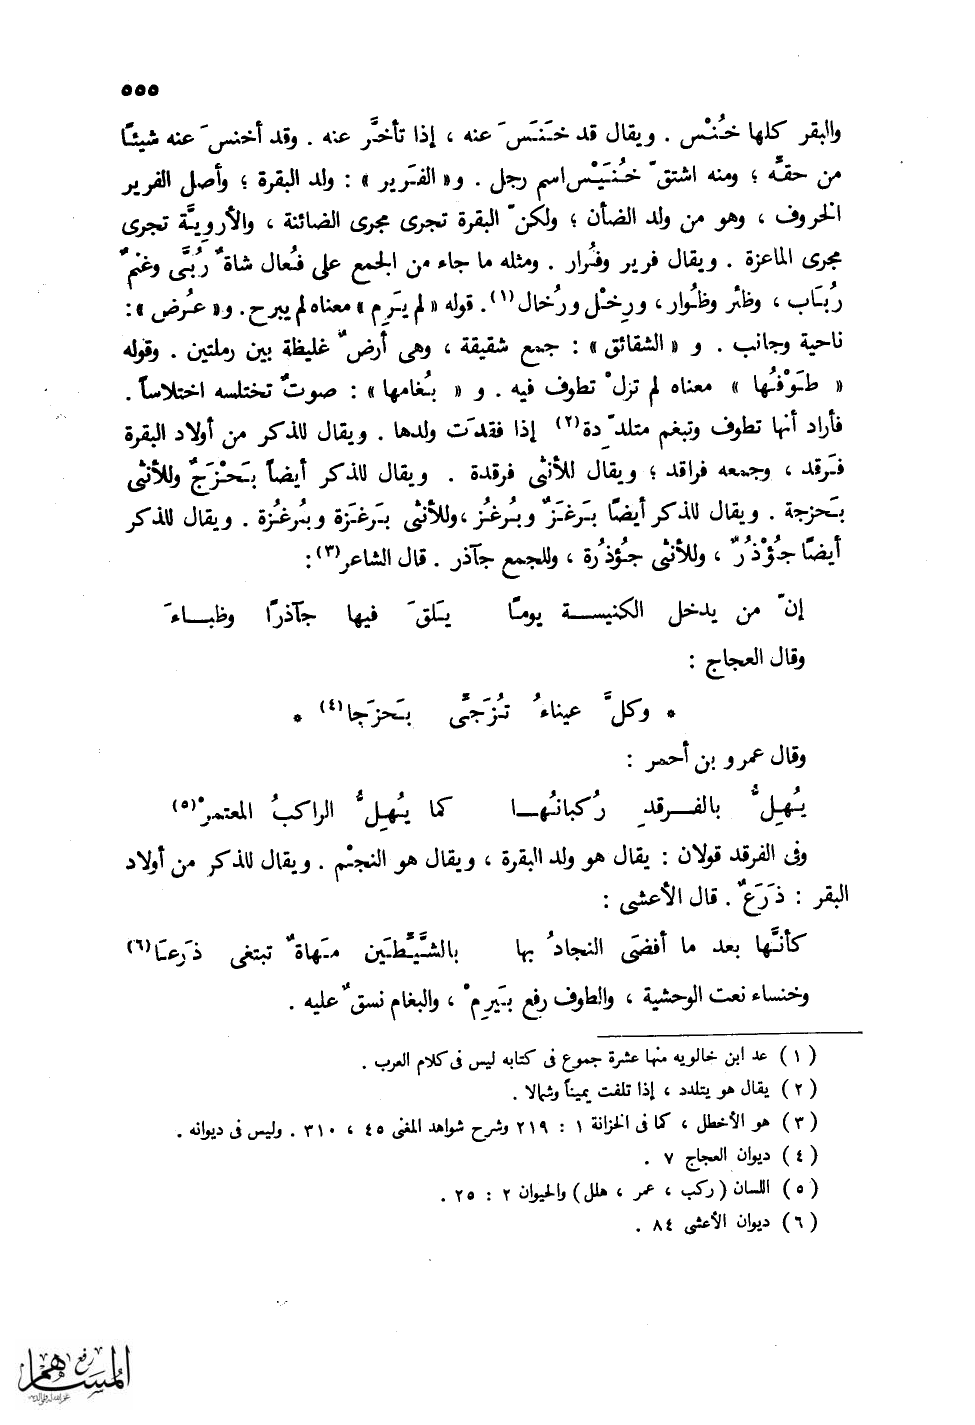 ٥٥٥
والبقر كلها خُنْس . ويقال قد خَنَسَ عنه ، إذا تأخَّر عنه . وقد أخنسَ عنه شيئًا
من حقّه ؛ ومنه اشتقّ خُنَيْس اسم رجل . و« الفَرير » : ولد البقرة ؛ وأصل الفرير
الخروف ، وهو من ولد الضأن ؛ ولكنّ البقرة تجرى مجرى الضائنة ، والأرويَّة تجرى
مجرى الماعزة . ويقال فرير وفُرار . ومثله ما جاء من الجمع على فُعال شاةٌ رُبَّى وغنمٌ
رُبَاب ، وظئر وظُوار ، ورِخْل ورُخال (١). قوله « لم يَرِم » معناه لم يبرح. و« عُرض »:
ناحية وجانب . و « الشقائق » : جمع شقيقة ، وهى أرضٌ غليظة بين رملتين . وقوله
« طَوْفُها » معناه لم تزلْ تطوف فيه . و « بُغامها » : صوتٌ تختلسه اختلاساً .
فأراد أنها تطوف وتبغم متلدّدة (٢) إذا فقدَت ولدها . ويقال للذكر من أولاد البقرة
فَرقد ، وجمعه فراقد ؛ ويقال للأنثى فرقدة . ويقال للذكر أيضاً بَحْزَجٌ وللأنثى
بَحزجة . ويقال للذكر أيضًا بَرغَزٌ وبُرغُز ، وللأنثى بَرغَزة وبُرغُزة . ويقال للذكر
أيضًا جُؤْذُرٌ ، وللأنثى جُؤذُرة ، وللجمع جآذر . قال الشاعر (٣) :
إنّ من يدخل الكنيســة يومًا يَلقَ فيها جآذرًا وظبـاءَ
وقال العجاج :
* وكلَّ عيناءُ تُزَجَّى بَحزَجا (٤) *
وقال عمرو بن أحمر :
يُهِلُّ بالفـرقدِ رُكبانُهـا كما يُهِلُّ الراكبُ المعتمرْ (٥)
وفى الفرقد قولان : يقال هو ولد البقرة ، ويقال هو النجْم . ويقال للذكر من أولاد
البقر : ذَرَعٌ . قال الأعشى :
كأنَّها بعد ما أفضَى النجادُ بها بالشَّيِّطَين مَهاةٌ تبتغى ذَرعَا (٦)
وخنساء نعت الوحشية ، والطوف رفع بيَرِمْ ، والبغام نسقٌ عليه .
( ١ ) عد ابن خالويه منها عشرة جموع فى كتابه ليس فى كلام العرب .
( ٢ ) يقال هو يتلدد ، إذا تلفت يميناً وشمالا .
( ٣ ) هو الأخطل ، كما فى الخزانة ١ : ٢١٩ وشرح شواهد المغنى ٤٥ ، ٣١٠ . وليس فى ديوانه .
( ٤ ) ديوان العجاج ٧ .
( ٥ ) اللسان ( ركب ، عمر ، هلل ) والحيوان ٢ : ٢٥ .
( ٦ ) ديوان الأعشى ٨٤ .